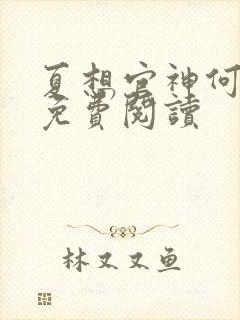 夏想官神何
免費閱讀
林又又鱼